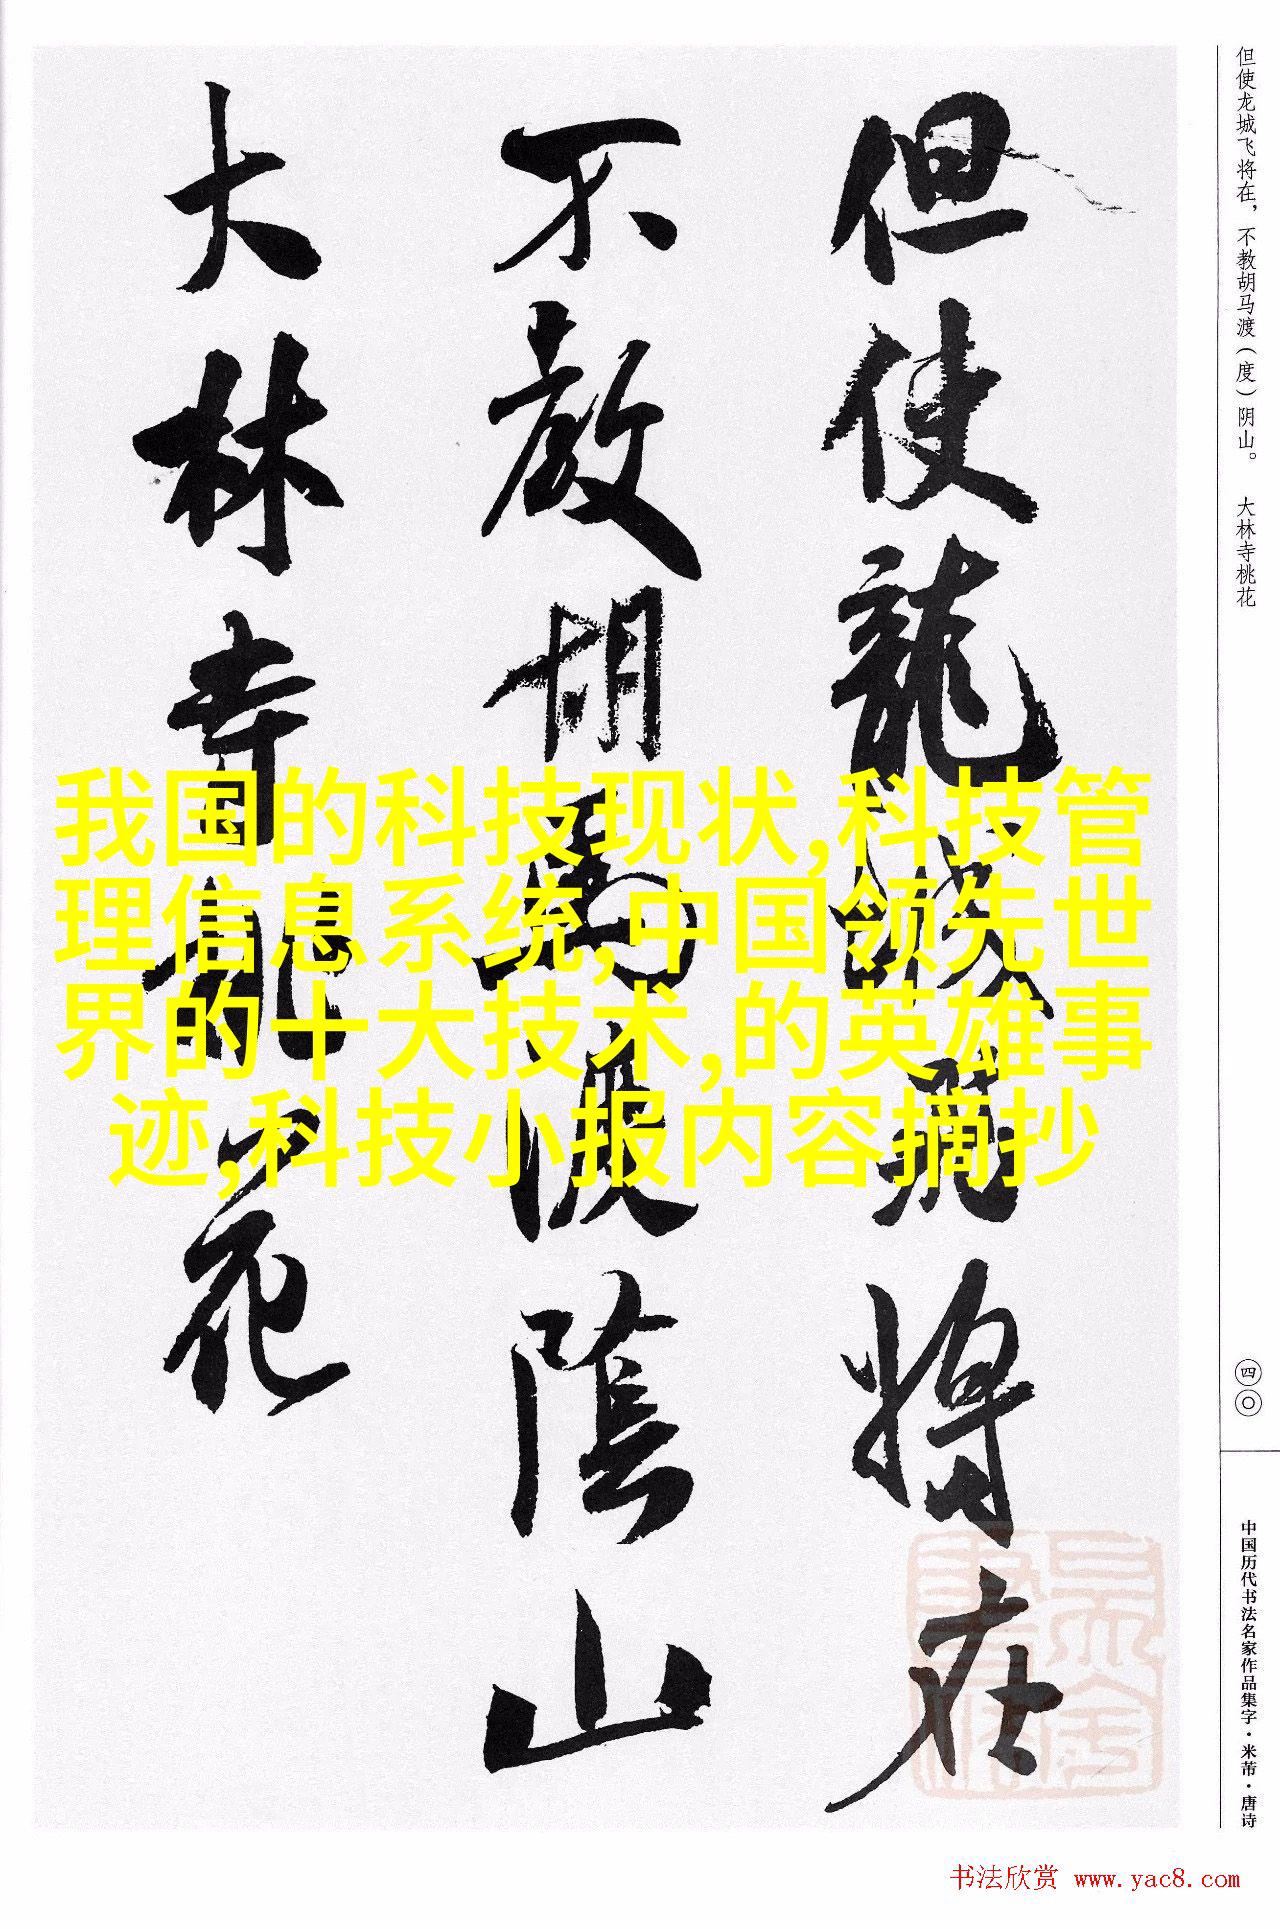 但使龍城飛將在
不教胡馬渡陰山
大林寺桃花
但使龙城飞将在，不教胡马渡（度）阴山。　大林寺桃花
四〇
中国历代书法名家作品集字·米芾·唐诗
我国的科技现状,科技管
理信息系统,中国领先世
界的十大技术,的英雄事
迹,科技小报内容摘抄
书法欣赏 www.yac8.com